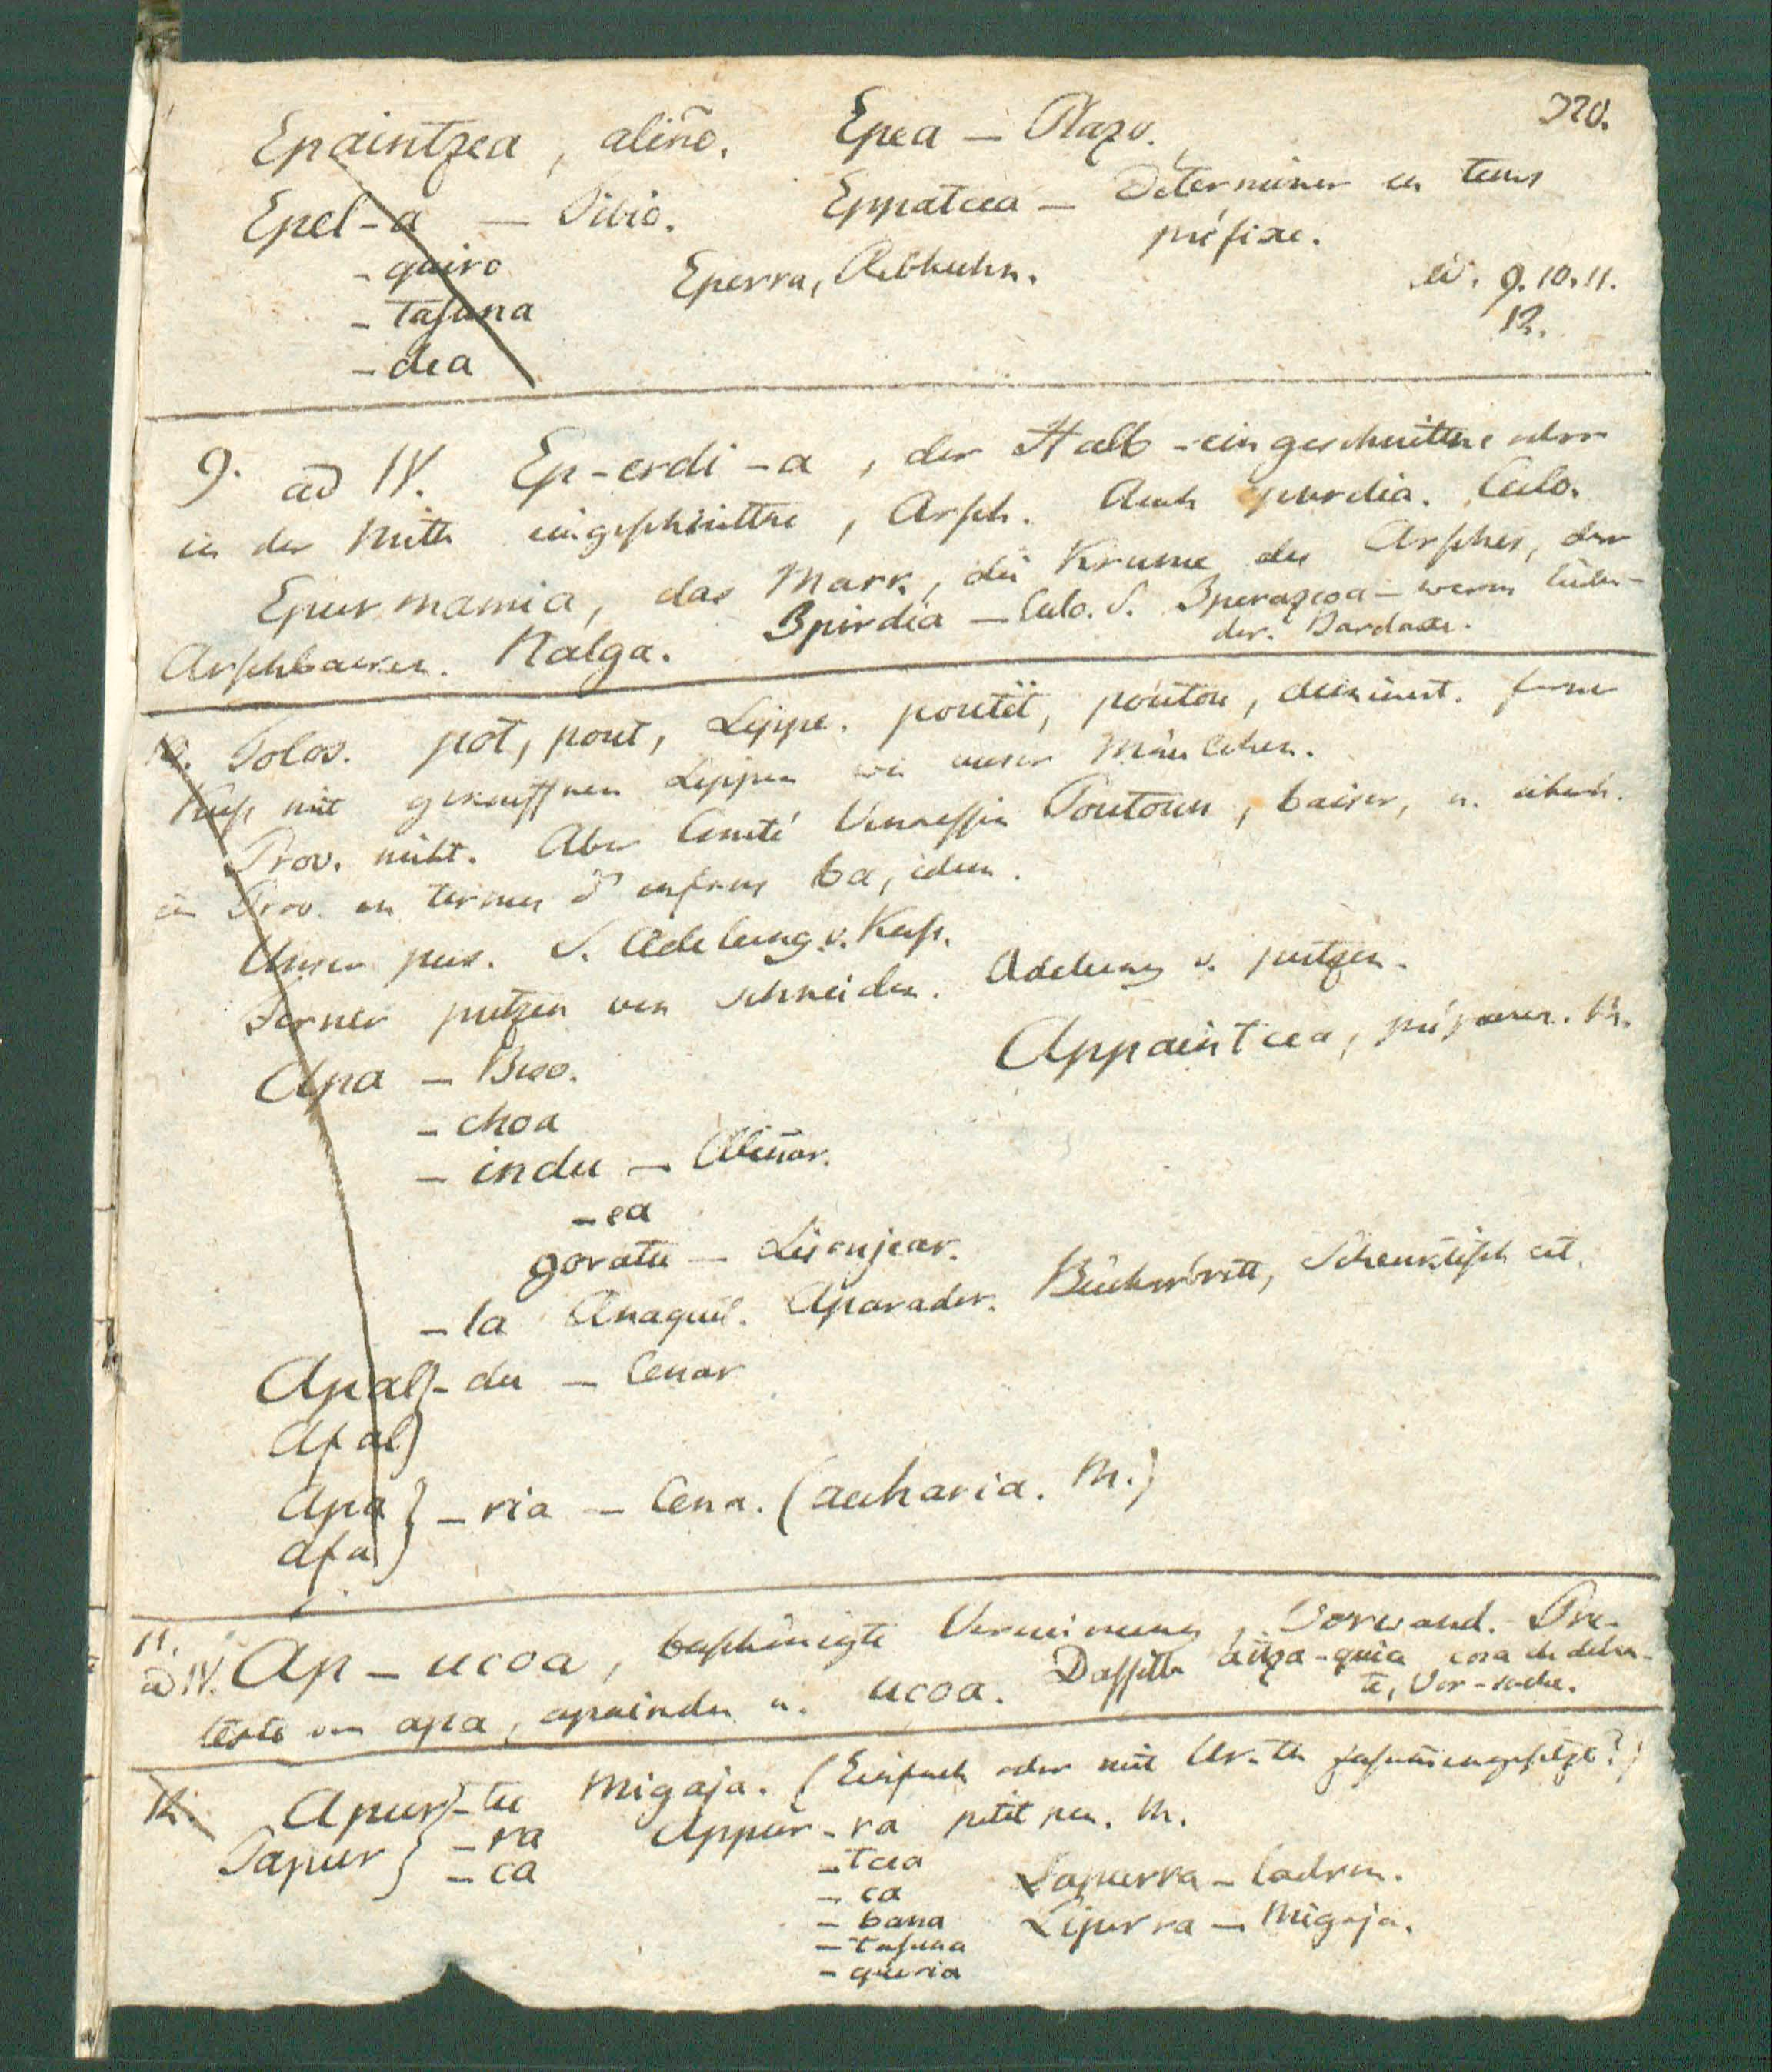 320.
Epaintzea, aliño. Epea — Plazo.
Epel-a — Tibio. Eppatcea — Determiner un tems
préfixe.
- quiro Eperra, Rebhuhn.
- tasuna
- dea
9. 10. 11.
12.
9. ad IV. Ep-erdi-a, der Halb-eingeschnittne oder
in der Mitte eingeschnittne, Arsch. Auch purdia. Culo.
Epurmamia, das Mark, die Krume des Arsches, der
Arschbacken. Nalga. Ipirdia — Culo. S. Iperazcoa —
der. Bardaxe.
10. Tolos. pot, pout, Lippe. poutét, poutou, diminut. ferner
Kuss mit Lippen wie unser Mäulchen.
Prov. nicht. Aber Comté Venaessin Poutoun, baiser, u. überh.
in Prov. en termes d'enfans ba, idem.
Unser pus. S. Adelung v. Kuss.
Ferner putzen von schneiden. Adelung v. putzen.
Apa — Beso. Appaintcea, préparer. M.
- choa
- indu — Aliñar.
- ea
goratu — Lisonjear.
- la Anaquel. Aparador. Bücherbrett, Schenktisch cet.
Apal} - du — Cenar
Afal}
Apa } - ria — Cena. (auharia. M.)
afa }
11.
ad IV. Ap-ucoa, beschönigte Verneinung, Vorwand. Pre-
texto von apa, apaindu u. ucoa. Dasselbe aitza-quia cosa de delan-
te, Vor-sache.
12. Apur} - tu Migaja. (Einfach oder mit Ur-tu zusammengesetzt?)
Papur } - ra Appur-ra petit peu. M.
- ca - tcea
- ca Lapurra — Ladron.
- bana Lipurra — Migaja.
- tasuna
- queria